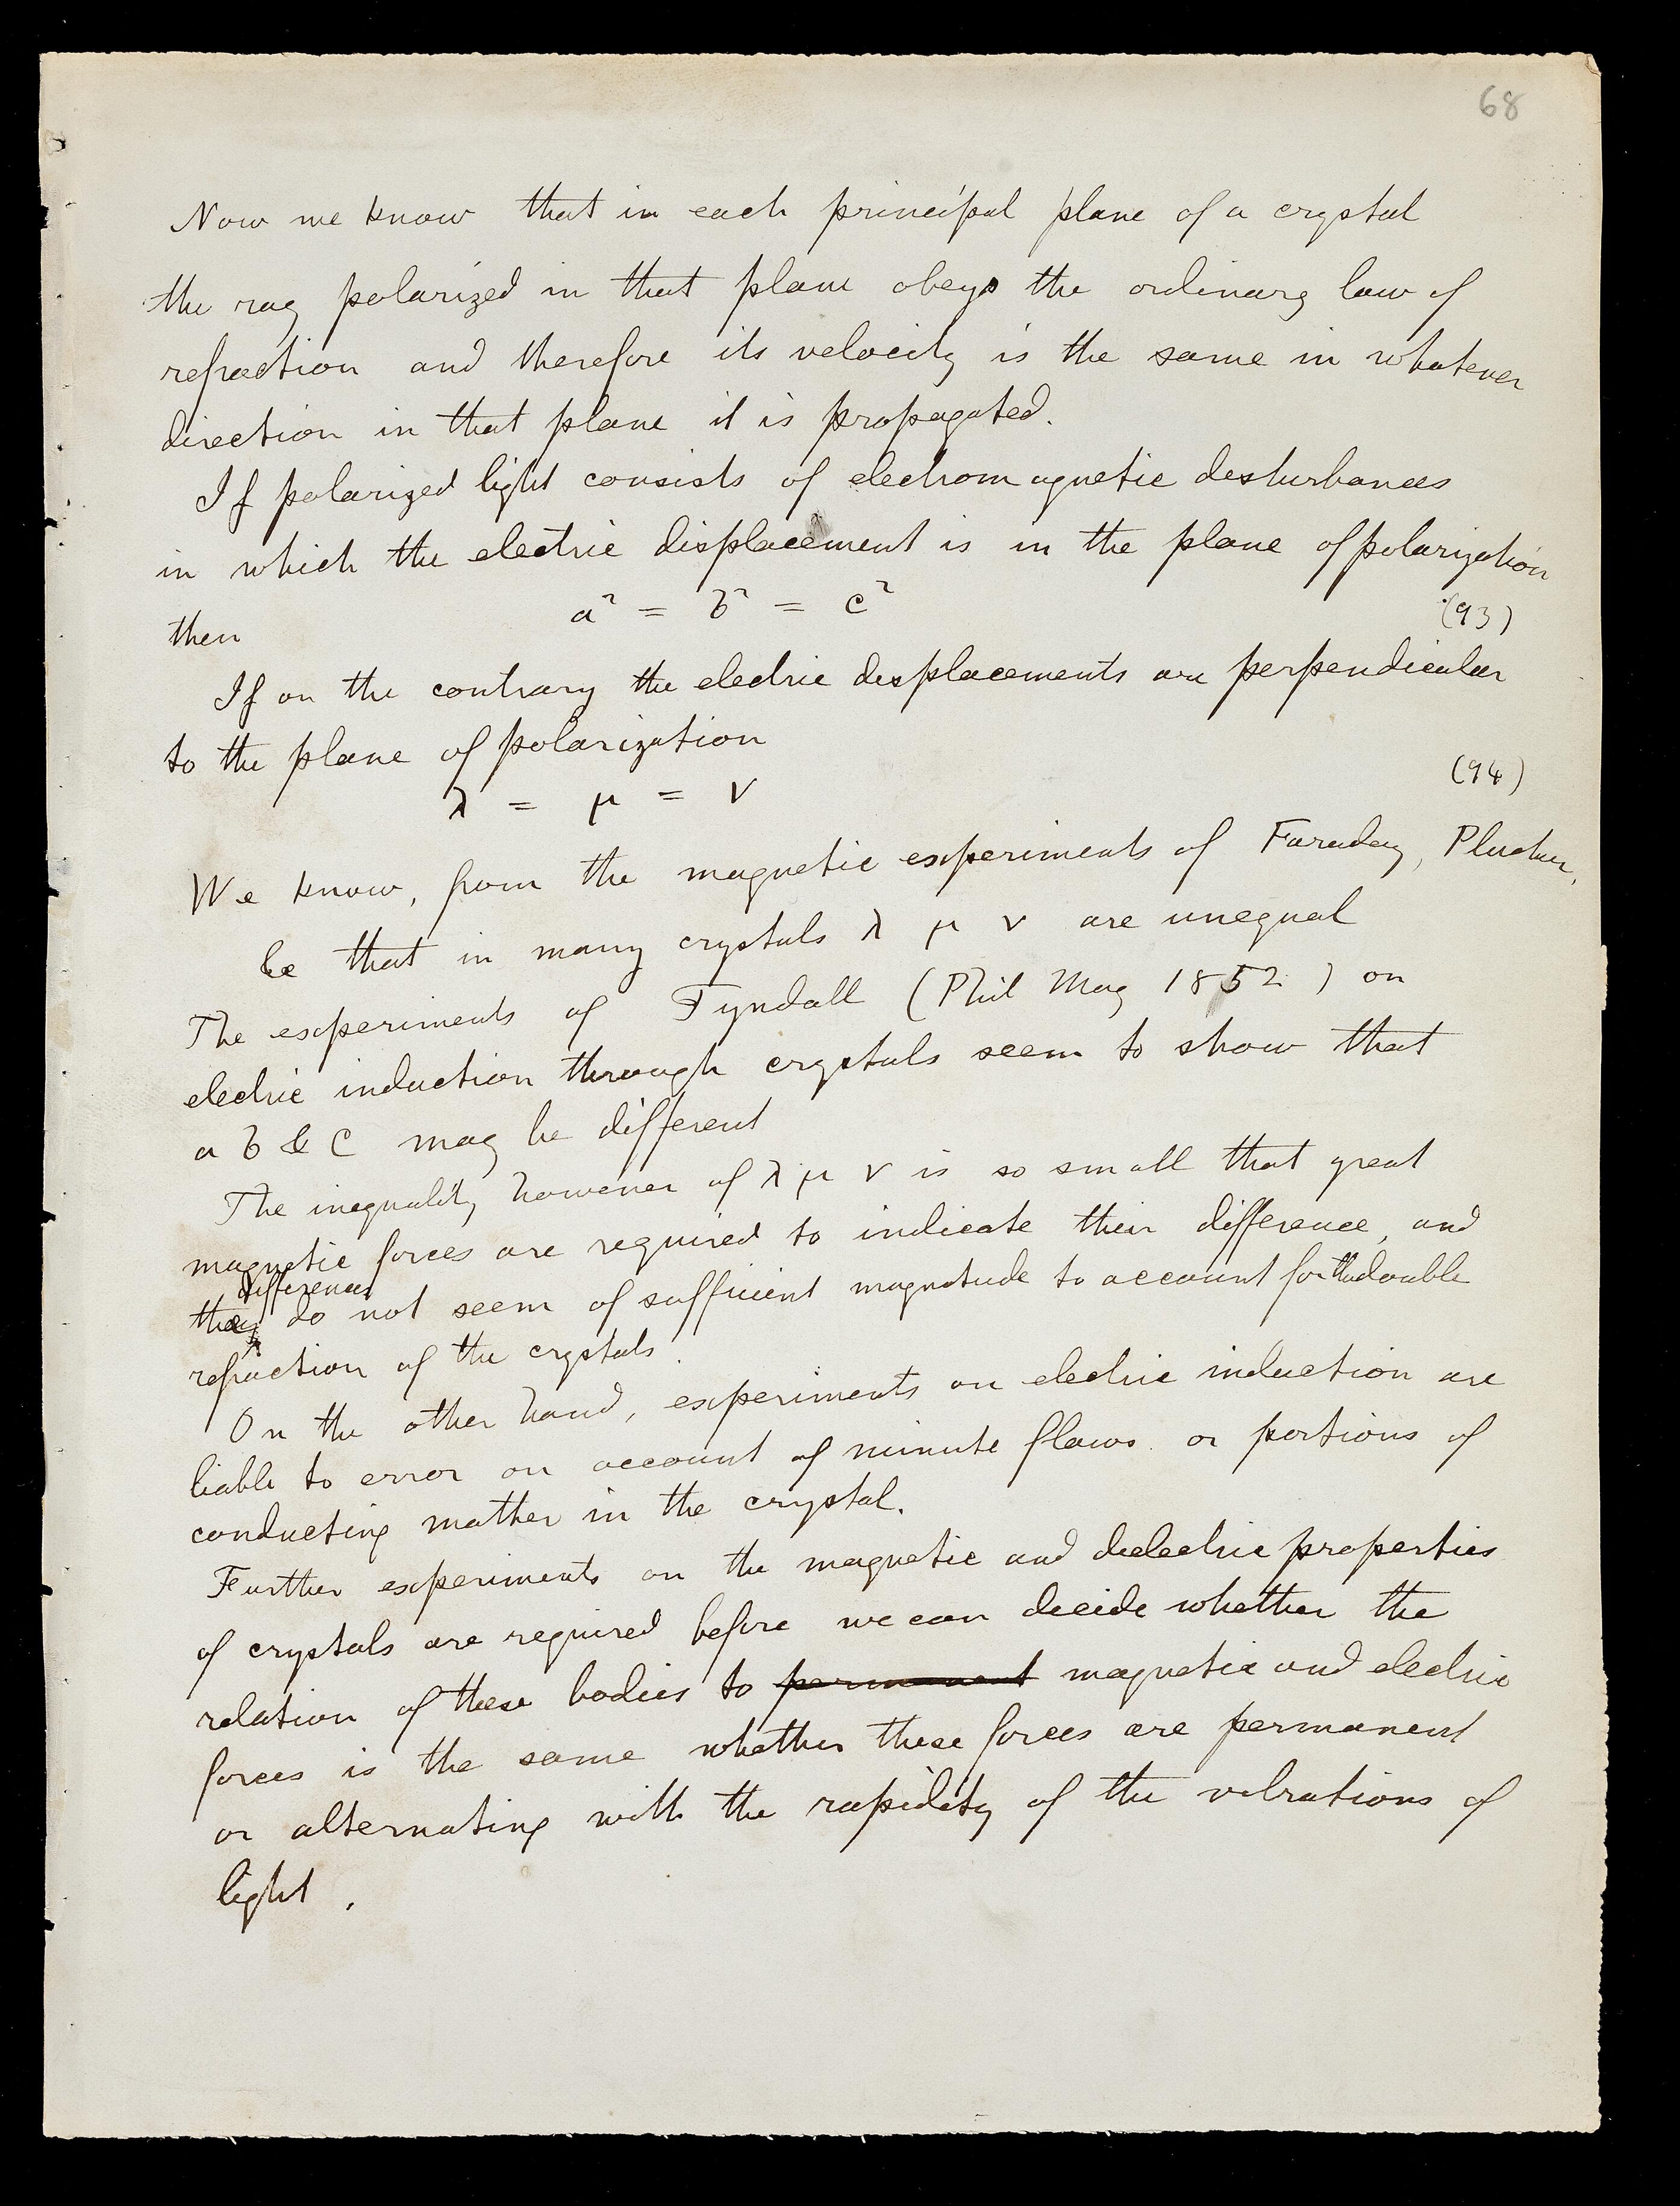 68
Now we know that in each principal plane of a crystal
the ray polarized in that plane obeys the ordinary law of
refraction and therefore its velocity is the same in whatever
direction in that plane it is propagated.
If polarized light consists of electromagnetic desturbances
in which the electric displacement is in the plane of polarization
then a² = b² = c² (93)
If on the contrary the electric desplacements are perpendicular
to the plane of polarization
λ = μ = ν (94)
We know, from the magnetic experiments of Faraday, Plucker,
&c that in many crystals λ μ ν are unequal
The experiments of Tyndall (Phil Mag 1852 ) on
electric induction through crystals seem to show that
a b & c may be different
The inequality however of λ μ ν is so small that great
magnetic forces are required to indicate their difference, and
differences
the do not seem of sufficient magnetude to account for the double
refraction of the crystals.
On the other hand, experiments on electric induction are
liable to error on account of minute flaws or portions of
conducting matter in the crystal.
Further experiments on the magnetic and dielectric properties
of crystals are required before we can decide whether the
relation of these bodies to permanent magnetic and electric
forces is the same whether these forces are permanent
or alternating with the rapidity of the vibrations of
light.